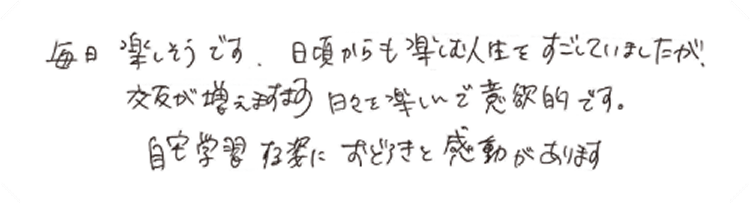 毎日 楽しそうです、日頃からも楽しむ人生をすごしていましたが、
交友が増えますます 日々を楽しんで意欲的です。
自宅学習する姿に おどろきと感動があります